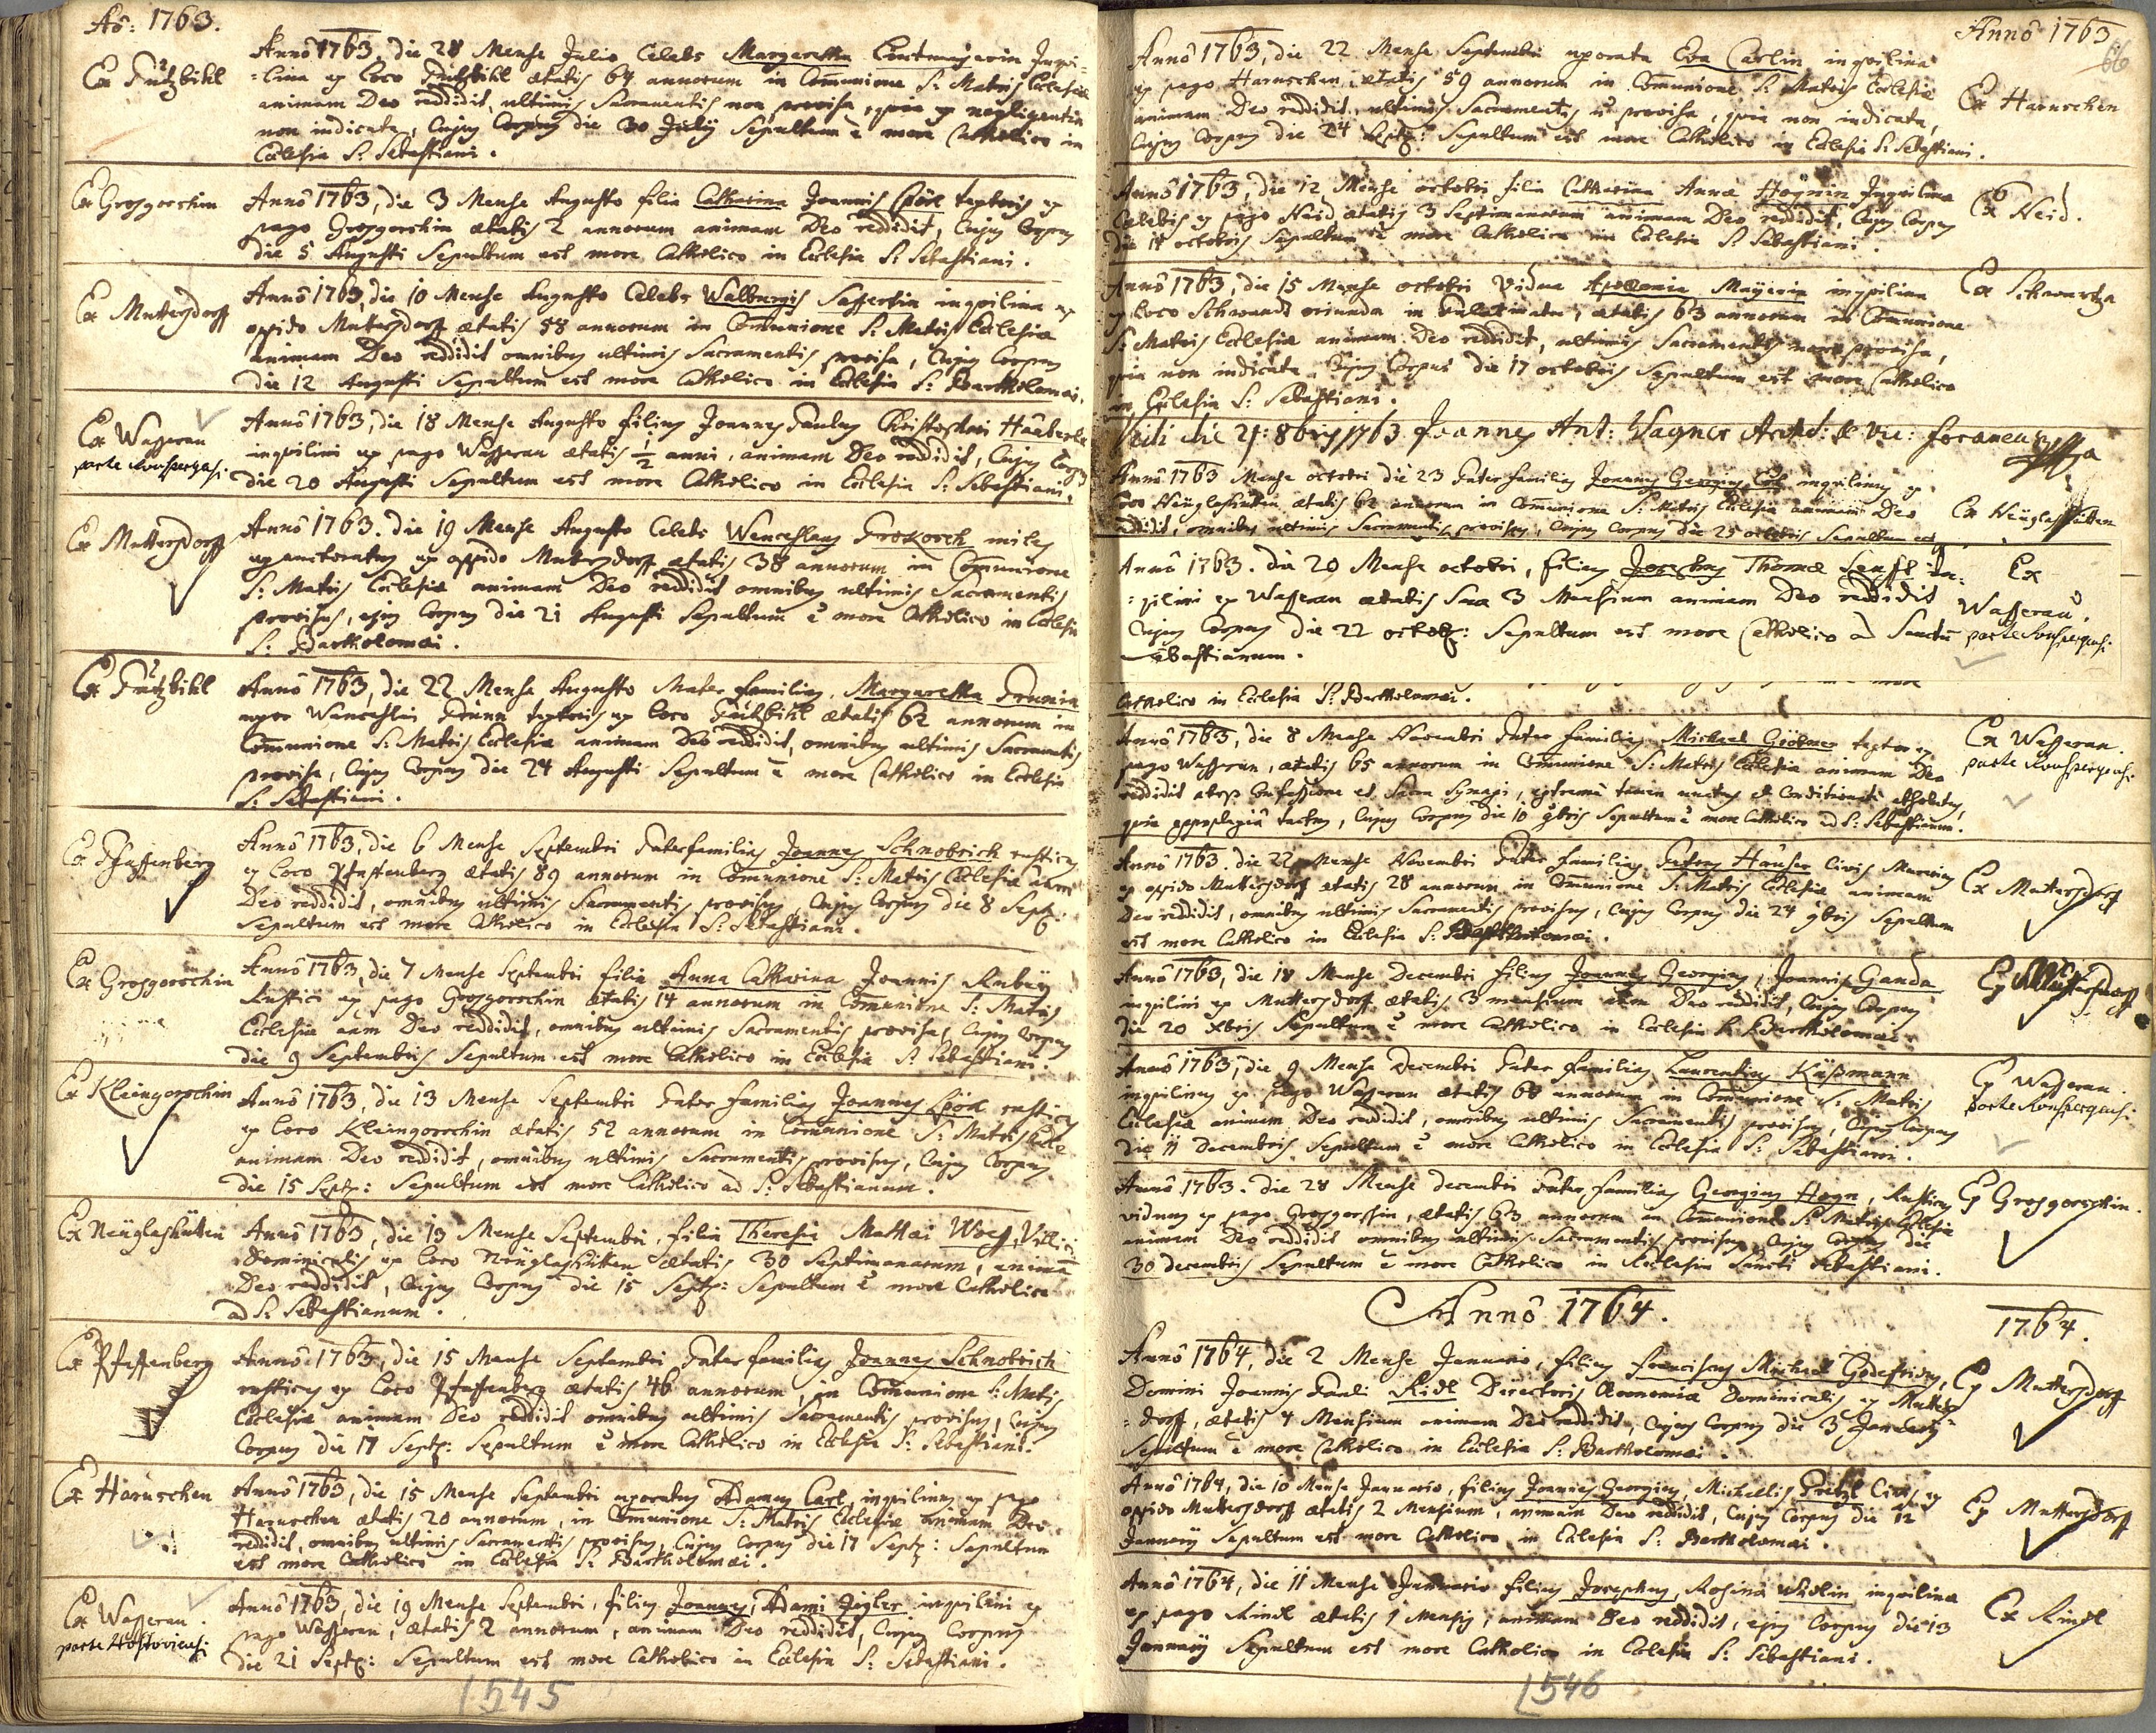 Aõ: 1763.
Ex Fützbihl
Anno 1763, die 28 Mense Julio Celebs Margaretha inqui=
=lina ex Loco Fützbihl ætatis 64 annorum in Comunione S: Matris Ecclesiæ
animam Deo reddidit, ultimis Sacramentis non provisa, quia ex negligentia
non indicata, Cujus Corpus die 30 Julÿ Sepultum ē more Catholico in
Ecclesia S: Sebastiani.
Ex Grosgorschin
Anno 1763, die 3 Mense Augusto filia Catharina Joannis Spörl textoris ex
pago Grosgorschin ætatis 2 annorum animam Deo reddidit, Cujus Corpus
die 5 Augusti Sepultum est more Catholico in Ecclesia S: Sebastiani.
Ex Muttersdorff
Anno 1763, die 10 Mense Augusto Celebs Walburgis inquilina ex
oppido Muttersdorff ætatis 58 annorum in Comunione S: Matris Ecclesiæ
animam Deo reddidit omnibus ultimis Sacramentis provisa, Cujus Corpus
die 12 Augusti Sepultum est more Catholico in Ecclesia S: Bartholomæi.
Ex Wasserau
parte Ronspergensi.
Anno 1763, die 18 Mense Augusto filius Joannes Paulus Christophori Haeberle
inquilini ex pago Wasserau ætatis 1/2 anni, animam Deo reddidit, Cujus Corpus
die 20 Augusti Sepultum est more Catholico in Ecclesia S: Sebastiani.
Ex Muttersdorff
Anno 1763. die 19 Mense Augusto Celebs Wenceslaus Prokosch miles
exauctoratus ex oppido Muttersdorff ætatis 38 annorum in Comunione
S: Matris Ecclesiæ animam Deo reddidit omnibus ultimis Sacramentis
provisus, ejus Corpus die 21 Augusti Sepultum ē more Catholico in Eclesia
S: Bartholomæi.
Ex Fützbihl
Anno 1763, die 22 Mense Augusto Mater familias, Margaretha
uxor Wenceslai textoris ex loco Fützbihl ætatis 62 annorum in
Comunione S: Matris Ecclesiæ animam Deo reddidit, omnibus ultimis Sacramentis
provisa, Cujus Corpus die 24 Augusti Sepultum ē more Catholico in Ecclesia
S: Sebastiani.
Ex Pfaffenberg
Anno 1763, die 6 Mense Septembri Paterfamilias Joannes Schnobrich rusticus
ex loco Pfaffenberg ætatis 89 annorum in Comunione S: Matris Ecclesiæ
Deo reddidit, omnibus ultimis Sacramentis provisus, Cujus Corpus die 8 Septb:
Sepultum est more Catholico in Ecclesia S: Sebastiani.
Ex Grosgorschin
Anno 1763, die 7 Mense Septembri filia Anna Catharina Joannis Rubey
Rustici ex pago Grosgorschin ætatis 14 annorum in Comunione S: Matris
Ecclesiæ aãm Deo reddidit, omnibus ultimis Sacramentis provisa, Cujus Corpus
die 9 Septembris Sepultum est more Catholico in Ecclesia S: Sebastiani.
Ex Kleingorschin
Anno 1763, die 13 Mense Septembri Pater familias Joannes Spörl rusticus
ex Loco Kleingorschin ætatis 52 annorum in Comunione S: Matris Eccle
animam Deo reddidit, omnibus ultimis Sacramentis provisus, Cujus Corpus
die 15 Septb: Sepultum est more Catholico ad S: Sebastianum.
Ex Neüglashütten
Anno 1763, die 13 Mense Septembri, filia Theresia Mathæi Villici
Dominicalis ex loco Neüglashütten ætatis 30 Septimanarum, animã
Deo reddidit, Cujus Corpus die 15 Septb: Sepultum ē more Catholico
ad S: Sebastianum.
Ex Pfaffenberg
Anno 1763, die 15 Mense Septembri Pater familias Joannes Schnobrich
rusticus ex loco Pfaffenberg ætatis 46 annorum, in Comunione S: Matris
Ecclesiæ animam Deo reddidit omnibus ultimis Sacramentis provisus, Cujus
Corpus die 17 Septb: Sepultum ē more Catholico in Ecclesia S: Sebastiani.
Ex Haruschen
Anno 1763, die 15 Mense Septembri uxoratus Adamus Carl, inquilinus ex pago
Haruschen ætatis 20 annorum, in Comunione S: Matris Ecclesiæ animam Deo
reddidit, omnibus ultimis Sacramentis provisus, Cujus Corpus die 17 Septb: Sepultum
est more Catholico in Ecclesia S: Bartholomæi.
Ex Wasserau
parte Hostoviensi
Anno 1763, die 19 Mense Septembri, filius Joannes, Adami Zigler inquilini ex
pago Wasserau, ætatis 2 annorum, animam Deo reddidit, Cujus Corpus
die 21 Septb: Sepultum est more Catholico in Eclesia S: Sebastiani.
545
Anno 1763
66
Anno 1763, die 22 Mense Septembri uxorata Eva Carlin inquilina
ex pago Haruschen, ætatis 59 annorum in Comunione S: Matris Ecclesiæ
animam Deo reddidit, ultimis Sacramentis ñ provisa, quia non indicata,
Cujus Corpus die 24 Septb: Sepultum est more Catholico in Ecclesia S: Sebastiani.
Ex Haruschen
Anno 1763, die 12 Mense octobri filia Catharina Annæ Inquilinæ
Celebis ex pago Neid ætatis 3 Septimanarum animam Deo reddidit, Cujus Corpus
die 14 octobris Sepultum ē more Catholico in Ecclesia S: Sebastiani.
Ex Neid.
Anno 1763, die 15 Mense octobri Vidua Apollonia Mayerin inquilina
ex Loco Schwandt oriunda in Palatinatu, ætatis 63 annorum in Comunione
S: Matris Ecclesiæ animam Deo reddidit, ultimis Sacramentis non provisa,
quia non indicata. Cujus Corpus die 17 octobris Sepultum est more Catholico
in Ecclesia S: Sebastiani.
Ex
Vidi die 21: 8bris 1763 Joannes Ant: Wagner Archid: & Vic: foraneus
Anno 1763 Mense octobri die 23 Pater familias Joannes Georgius inquilinus ex
loco Neüglashütten ætatis 62 annorum in Comunione S: Matris Ecclesiæ animam Deo
reddidit, omnibus ultimis Sacramentis provisus, Cujus Corpus die 25 octobris Sepultum est
Ex Neüglashütten
Anno 1763. die 20 Mense octobri, filius Josephus Thomæ Senfft In:
:quilini ex Wasserau ætatis Suæ 3 Mensium animam Deo reddidit
Cujus Corpus die 22 octob: Sepultum est more Catholico ad Sanctũ
Sebastianum.
Ex
Wasserau.
parte Ronspergensi.
Catholico in Ecclesia S: Bartholomæi.
Anno 1763, die 8 Mense Novembri Pater familias Michael textor ex
pago Wasserau, ætatis 65 annorum in Comunione S: Matris Ecclesiæ animam Deo
reddidit absq Confessione et Sacra Synaxi, extremã tamen unctus & Conditionate absolutus,
quia apoplexiâ tactus, Cujus Corpus die 10 9bris Sepultum ē more Catholico ad S: Sebastianum.
Ex Wasserau.
parte Ronspergensi.
Anno 1763. die 22 Mense Novembri Pater familias Petrus Haüser Civis
ex oppido Muttersdorff ætatis 28 annorum in Comunione S: Matris Ecclesiæ animam
Deo reddidit, omnibus ultimis Sacramentis provisus, Cujus Corpus die 24 9bris Sepultum
est more Catholico in Ecclesia S: Bartholomæi.
Ex Muttersdorff
Anno 1763, die 18 Mense Decembri filius Joannes Georgius, Joannis Ganda
inquilini ex Muttersdorff ætatis 3 mensium aãm Deo reddidit, Cujus Corpus
die 20 Xbris Sepultum ē more Catholico in Ecclesia S: Bartholomæi
Ex Muttersdorff
Anno 1763, die 9 Mense Decembri Pater familias Laurentius Käßmann
inquilinus ex pago Wasserau ætatis 68 annorum in Comunione S: Matris
Ecclesiæ animam Deo reddidit, omnibus ultimis Sacramentis provisus, Cujus Corpus
die 11 Decembris Sepultum ē more Catholico in Ecclesia S: Sebastiani.
Ex Wasserau
parte Ronspergensi.
Anno 1763. die 28 Mense Decembri Pater familias Georgius Rusticus
viduus ex pago Grosgorschin, ætatis 63 annorum in Comunione S: Matris Ecclesiæ
animam Deo reddidit omnibus ultimis Sacramentis provisus, Cujus Corpus die
30 Decembris Sepultum ē more Catholico in Ecclesia Sancti Sebastiani.
Ex Grosgorschin.
Anno 1764.
1764.
Anno 1764, die 2 Mense Januario, filius Franciscus Michael Godefridus,
Domini Joannis Pauli Ridl Directoris Œconomiæ Dominicalis ex Mutters
=dorff, ætatis 4 Mensium animam Deo reddidit, Cujus Corpus die 3 Januarÿ
Sepultum ē more Catholico in Ecclesia S: Bartholomæi.
Ex Muttersdorff
Anno 1764, die 10 Mense Januario, filius Joannes Georgius, Michaelis Civis ex
oppido Muttersdorff ætatis 2 Mensium, animam Deo reddidit, Cujus Corpus die 12
Januarÿ Sepultum est more Catholico in Eclesia S: Bartholomæi.
Ex Muttersdorff
Anno 1764, die 11 Mense Januario filius Josephus, Rosinæ inquilinæ
ex pago Rindl ætatis 1 Mensis, animam Deo reddidit, ejus Corpus die 13
Januarÿ Sepultum est more Catholico in Eclesia S: Sebastiani.
Ex Rindl
546